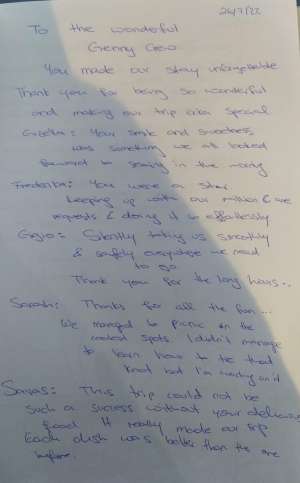 26/7/22
To the wonderful
Genny Crew
You made our stay unforgettable
Thank you for being so wonderful
and making our trip extra special
Your smile and sweetness
was something we all looked
forward to seeing in the morning
Frederika: You were a star
keeping up with our million & one
requests & doing it so effortlessly
Gigio: Silently taking us smoothly
& safely everywhere we need
to go
Thank you for the long hours...
Sarah: Thanks for all the fun...
We managed to picnic in the
coolest spots. I didn't manage
to learn how to tie that
knot but I'm working on it
Savas: This trip could not be
such a success without your delicious
food. It really made our trip
Each dish was better than the one
before.